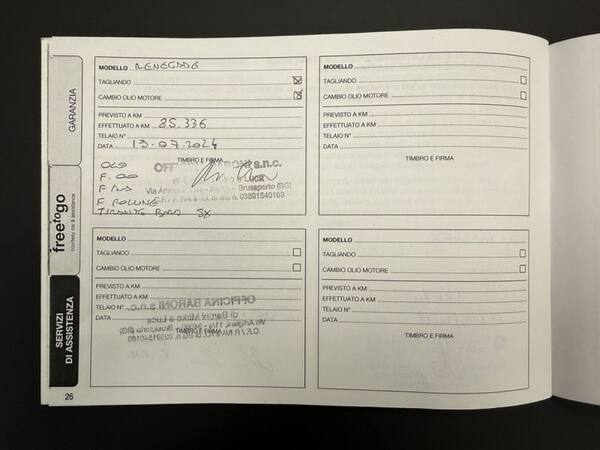 GARANZIA
freetogo
courtesy car & assistance
SERVIZI
DI ASSISTENZA
26
MODELLO RENEGADE
TAGLIANDO
CAMBIO OLIO MOTORE
PREVISTO A KM
EFFETTUATO A KM 85.336
TELAIO N°
DATA 13.07.2024
TIMBRO E FIRMA
OLIO
F. OO
F ROLLINE
TIRANTE BARO SX
BARONI s.n.c.
LUCE
Via
Brusaporto (BG)
03891540169
MODELLO
TAGLIANDO
CAMBIO OLIO MOTORE
PREVISTO A KM
EFFETTUATO A KM
TELAIO N°
DATA
TIMBRO E FIRMA
MODELLO
TAGLIANDO
CAMBIO OLIO MOTORE
PREVISTO A KM
EFFETTUATO A KM
TELAIO N°
DATA
OFFICINA BARONI s.n.c.
di Baroni Mirko e Luca
TIMBRO E FIRMA
MODELLO
TAGLIANDO
CAMBIO OLIO MOTORE
PREVISTO A KM
EFFETTUATO A KM
TELAIO N°
DATA
TIMBRO E FIRMA